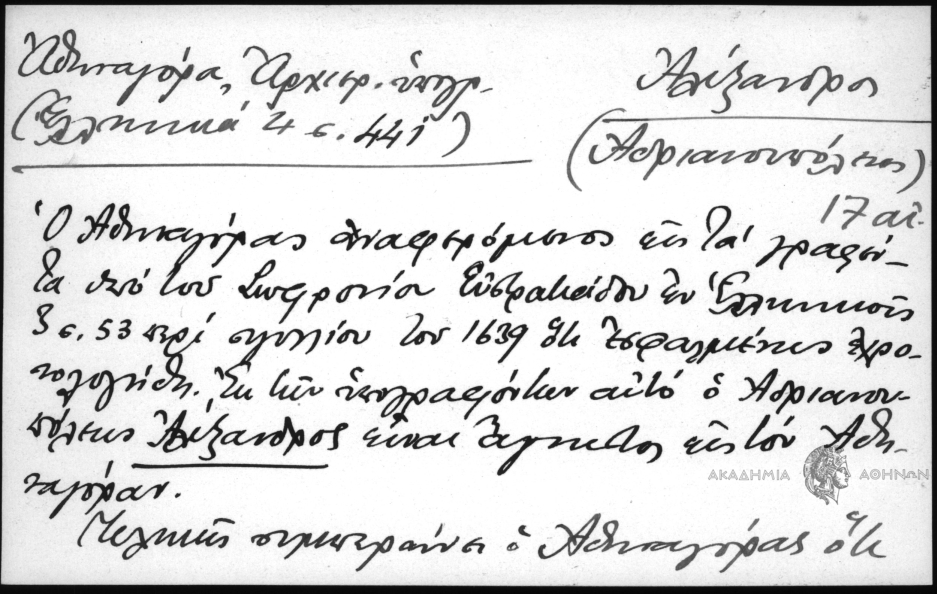 Ἀθηναγόρα, Ἀρχιερ. ὑπογρ.
(Ἑλληνικά 4 σ. 441)
Ἀλέξανδρος
(Ἀδριανουπόλεως)
17 αἰ.
Ὁ Ἀθηναγόρας ἀναφερόμενος εἰς τά γραφέν-
τα ὑπό τοῦ Σωφρονίου Εὐστρατιάδου ἐν Ἑλληνικοῖς
3 σ. 53 περί σιγιλλίου τοῦ 1639 ὅτι ἐσφαλμένως ἐχρο-
νολογήθη. Ἐκ τῶν ὑπογραφόντων αὐτό ὁ Ἀδριανου-
πόλεως Ἀλέξανδρος εἶναι ἄγνωστος εἰς τόν Ἀθη-
ναγόραν.
Τελικῶς συμπεραίνει ὁ Ἀθηναγόρας ὅτι
ΑΚΑΔΗΜΙΑ ΑΘΗΝΩΝ